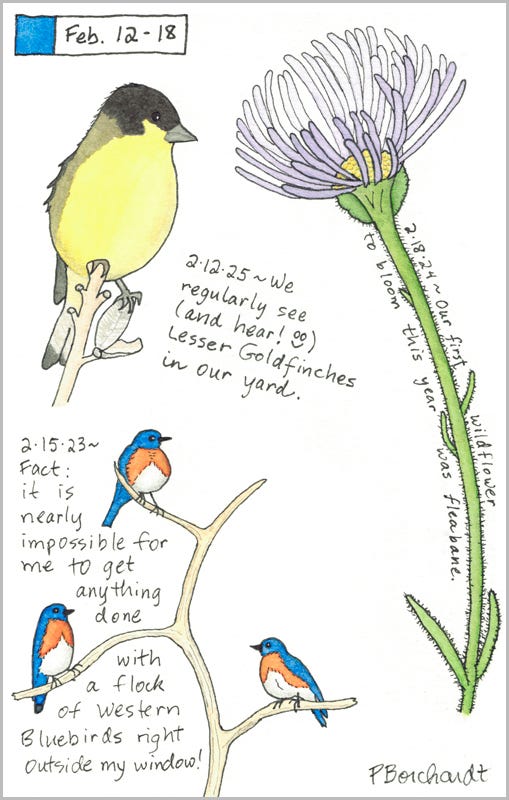 Feb. 12-18
2·12·25~We
regularly see
(and hear! )
Lesser Goldfinches
in our yard.
2·18·24~Our first
wildflower
to bloom this year
was fleabane.
2·15·23~
Fact:
it is
nearly
impossible for
me to get
anything
done
with
a flock
of Western
Bluebirds right
outside my window!
PBorchardt